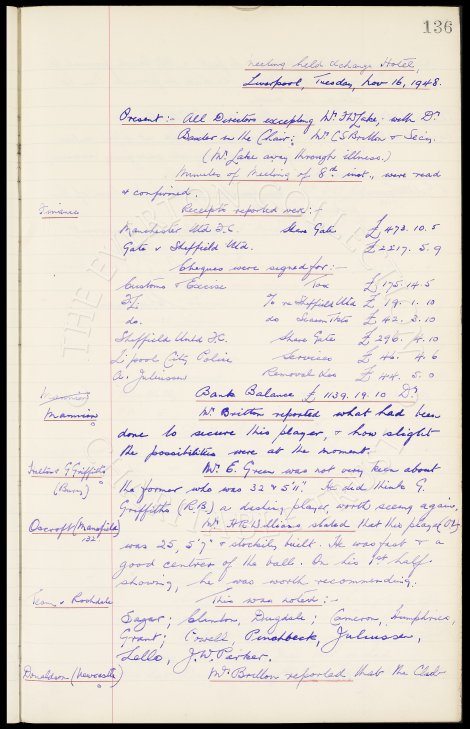 136
Meeting held Exchange Hotel,
Liverpool, Tuesday, Nov 16, 1948.
Present:- All Directors excepting Mr. F.W. Lake, with Dr.
Baxter in the Chair; Mr. C S Britton & Secy.
(Mr. Lake away through illness.)
Minutes of Meeting of 8th inst., were read
& confirmed.
Finance
Receipts reported were:-
Manchester Utd F.C. Share Gate £ 473. 10. 5
Gate v Sheffield Utd. £ 2217. 5. 9
Cheques were signed for:-
Customs & Excise Tax £ 175. 14. 5
F.L. % re Sheffield Utd £ 19. 1. 10
do. do Season Tkts £ 42. 2. 10
Sheffield United F.C. Share Gate £ 296. 4. 10
L'pool City Police Services £ 46. 4. 6
A. Juliussen Removal £ 44. 5. 0
Bank Balance £ 1139. 19. 10 Dr.
Mannion
Mr. Britton reported what had been
done to secure this player, & how slight
the possibilities were at the moment.
Fulton & G. Griffiths
(Bury)
Mr. E. Green was not very keen about
the former who was 32 & 5'11". He did think G.
Griffiths (R.B.) a dashing player, worth seeing again,
Oscroft (Mansfield)
Mr. H.R. Williams stated that this player (O.L.)
was 25, 5'7" & stockily built. He was fast & a
good centrer of the ball. On his 1st half
showing, he was worth recommending.
Team v Rochdale
This was noted:-
Sagar; Clinton, Dugdale; Cameron, Humphries,
Grant; Powell, Pinchbeck, Juliussen,
Lello, J.W. Parker.
Donaldson (Newcastle)
Mr. Britton reported that the Club